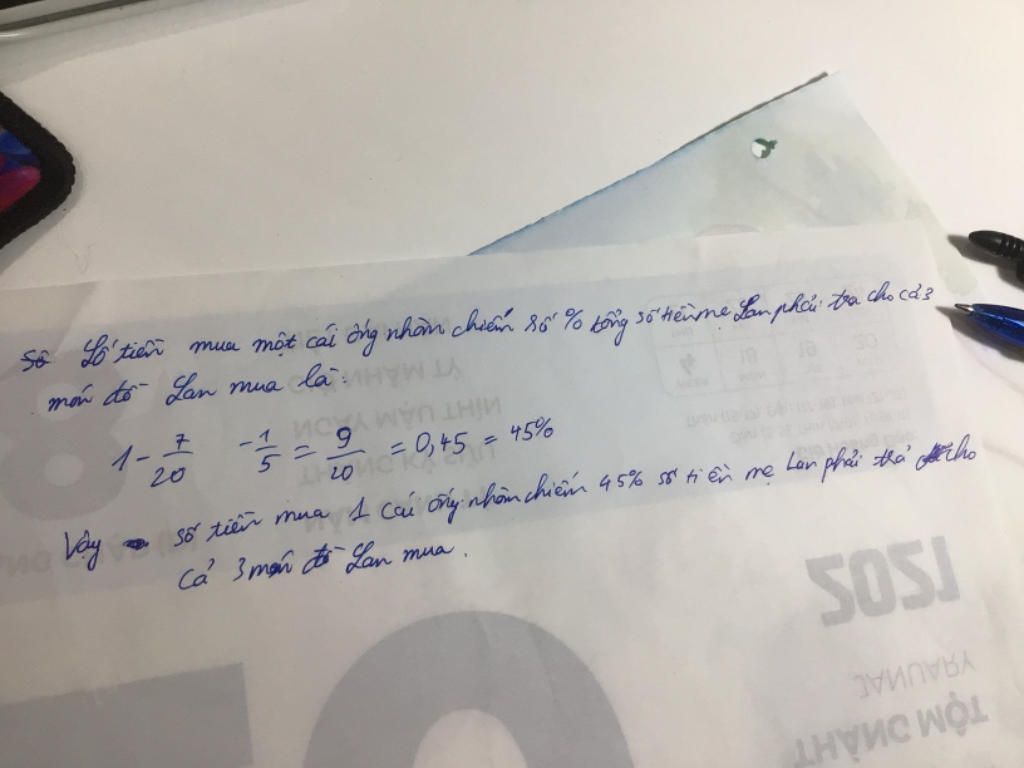 Số Số tiền mua một cái ống nhòm chiếm số % tổng số tiền mẹ Lan phải trả cho cả 3
món đồ Lan mua là:
1 - 7/20 - 1/5 = 9/20 = 0,45 = 45%
Vậy số tiền mua 1 cái ống nhòm chiếm 45% số tiền mẹ Lan phải trả cho
cả 3 món đồ Lan mua.
2021
JANUARY
THÁNG MỘT